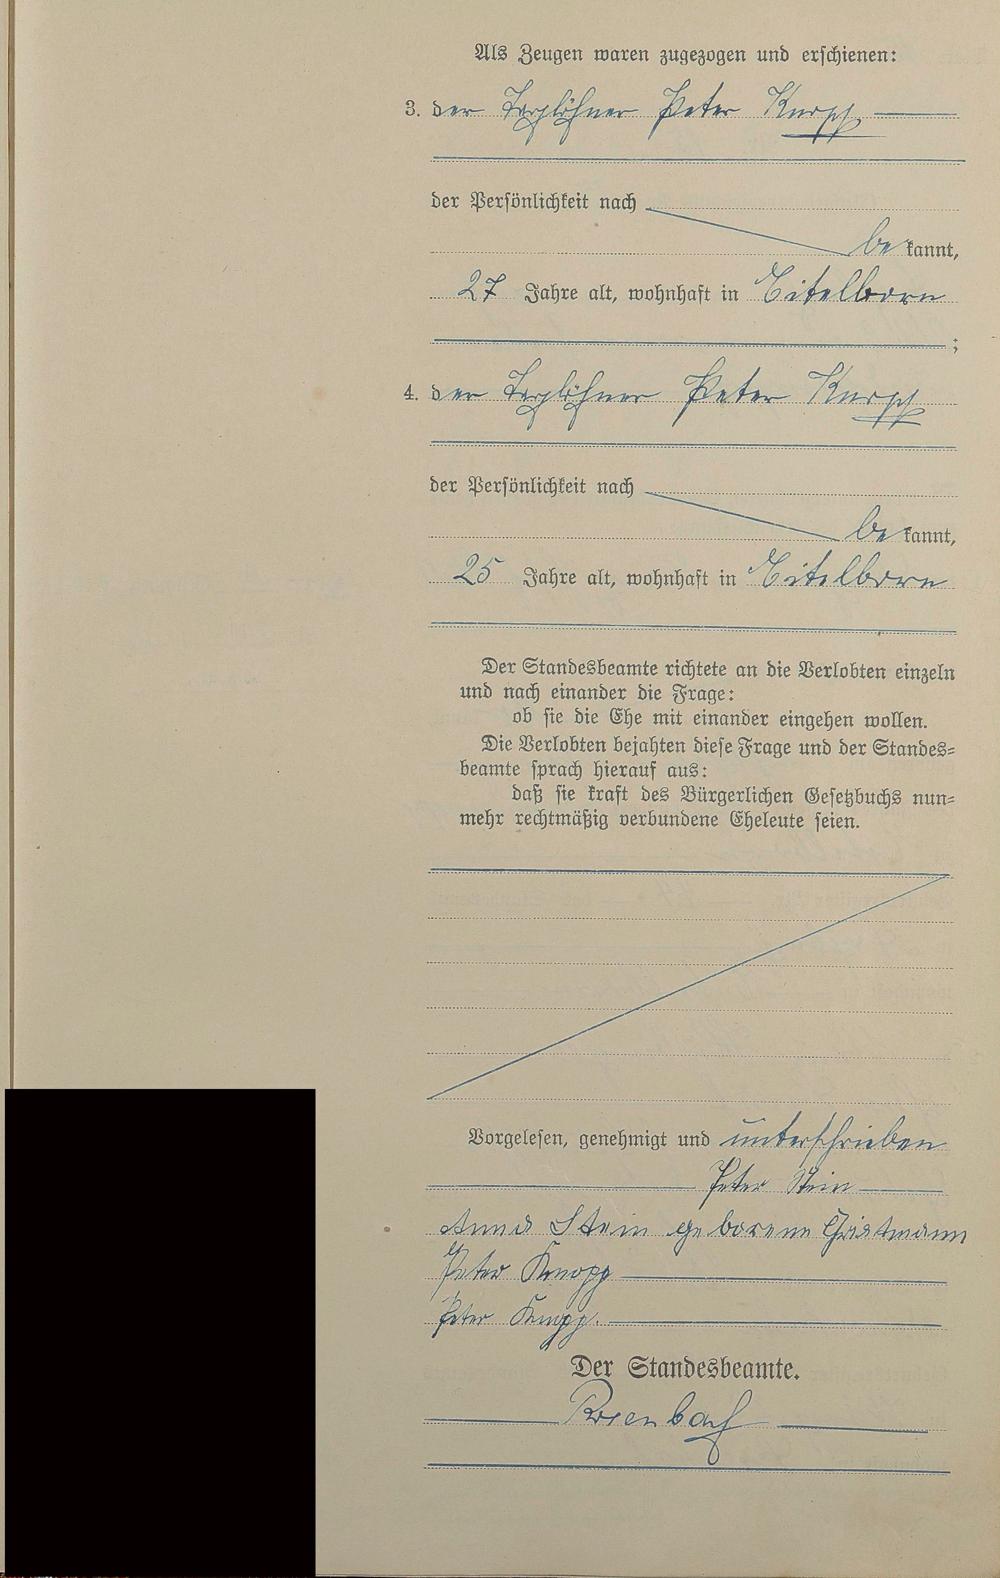 Als Zeugen waren zugezogen und erschienen:
3. der Taglöhner Peter Knopp
der Persönlichkeit nach
be kannt,
27 Jahre alt, wohnhaft in Eitelborn
;
4. der Taglöhner Peter Knopp
der Persönlichkeit nach
be kannt,
25 Jahre alt, wohnhaft in Eitelborn
Der Standesbeamte richtete an die Verlobten einzeln
und nach einander die Frage:
ob sie die Ehe mit einander eingehen wollen.
Die Verlobten bejahten diese Frage und der Standes-
beamte sprach hierauf aus:
daß sie kraft des Bürgerlichen Gesetzbuchs nun-
mehr rechtmäßig verbundene Eheleute seien.
Vorgelesen, genehmigt und unterschrieben
Peter Stein
Anna Stein geborene
Peter Knopp
Peter Knopp.
Der Standesbeamte.
Rosenbach